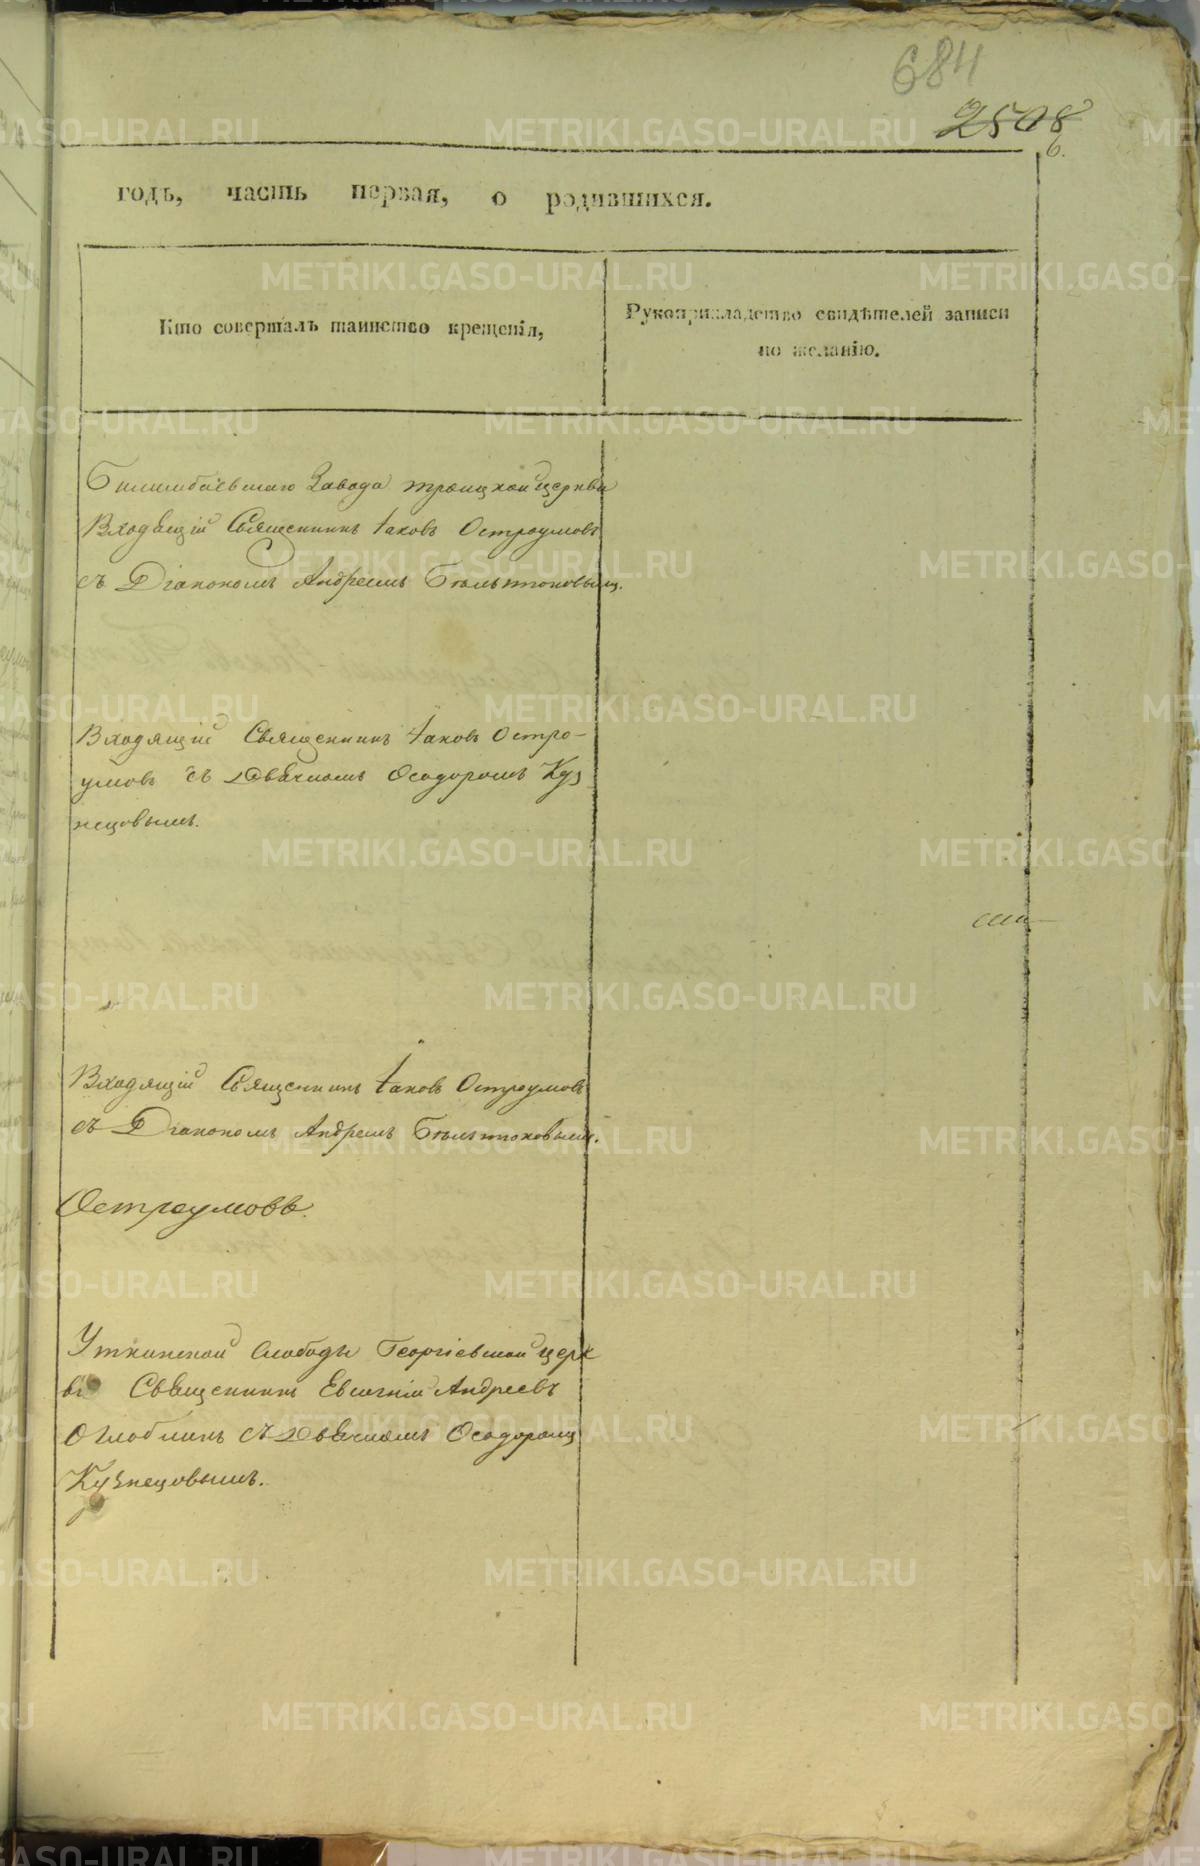 684
2508
6.
годъ, часть первая, о родившихся.
Кто совершалъ таинство крещенія,
Рукоприкладство свидѣтелей записи
по желанію.
Билимбаевскаго Завода троицкой церкви
Входящій Священникъ Іаковъ Остроумовъ
съ Діакономъ Андреемъ Бѣльтюковымъ.
Входящій Священникъ Іаковъ Остро-
умовъ съ Дьячкомъ Ѳеодоромъ Куз
нецовымъ.
Входящій Священникъ Іаковъ Остроумовъ
съ Діакономъ Андреемъ Бѣльтюковымъ.
Остроумовъ.
Уткинской Слободы Георгіевской церк
ви Священникъ Евгеній Андреевъ
Оглоблинъ съ Дьячкомъ Ѳеодоромъ
Кузнецовымъ.
METRIKI.GASO-URAL.RU